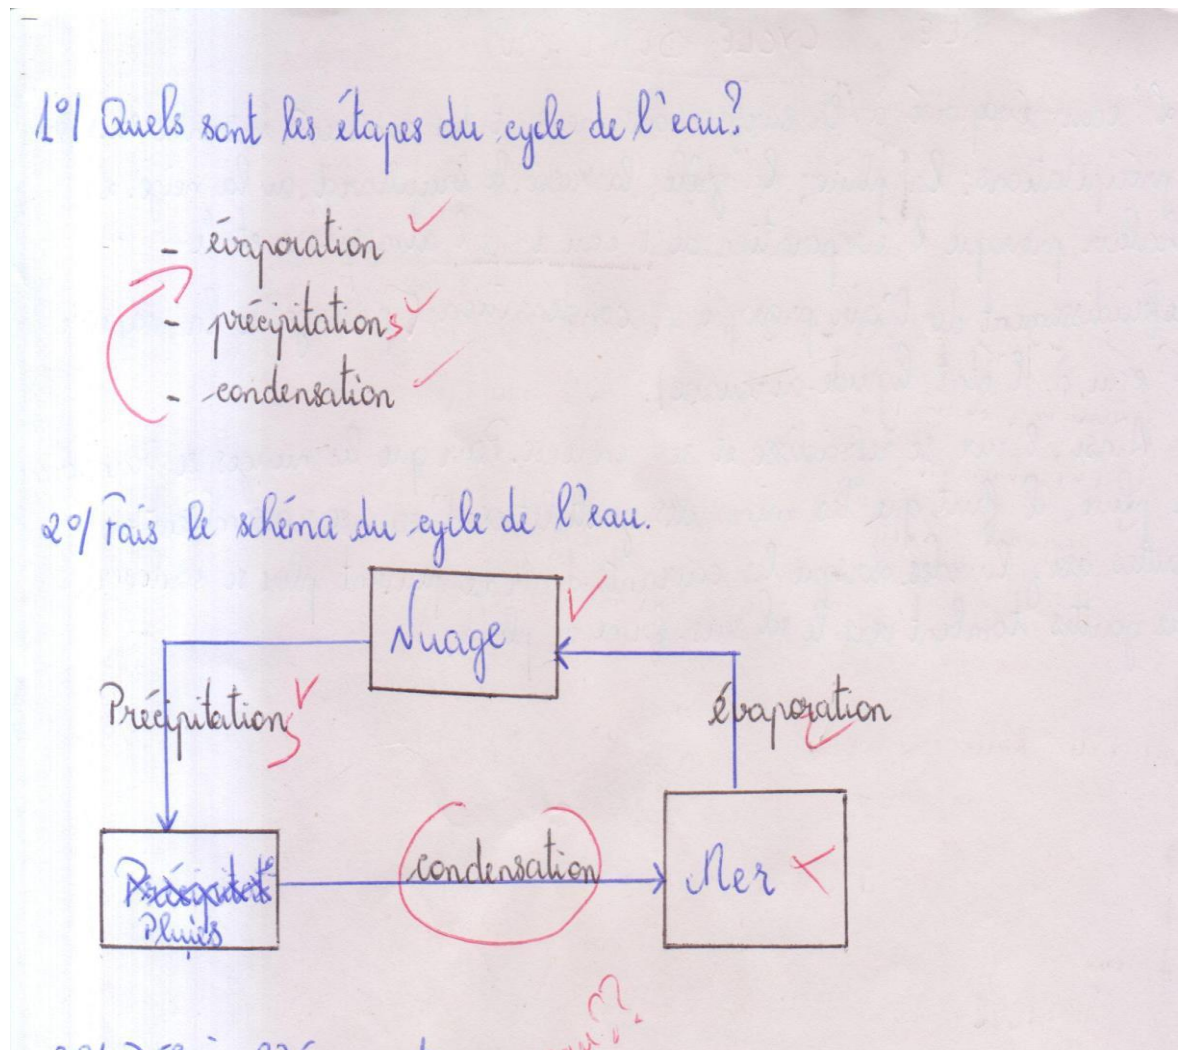 1°/ Quels sont les étapes du cycle de l'eau?
- évaporation
- précipitations
- condensation
2°/ Fais le schéma du cycle de l'eau.
Nuage
Précipitations
évaporation
condensation
Mer
Pluies